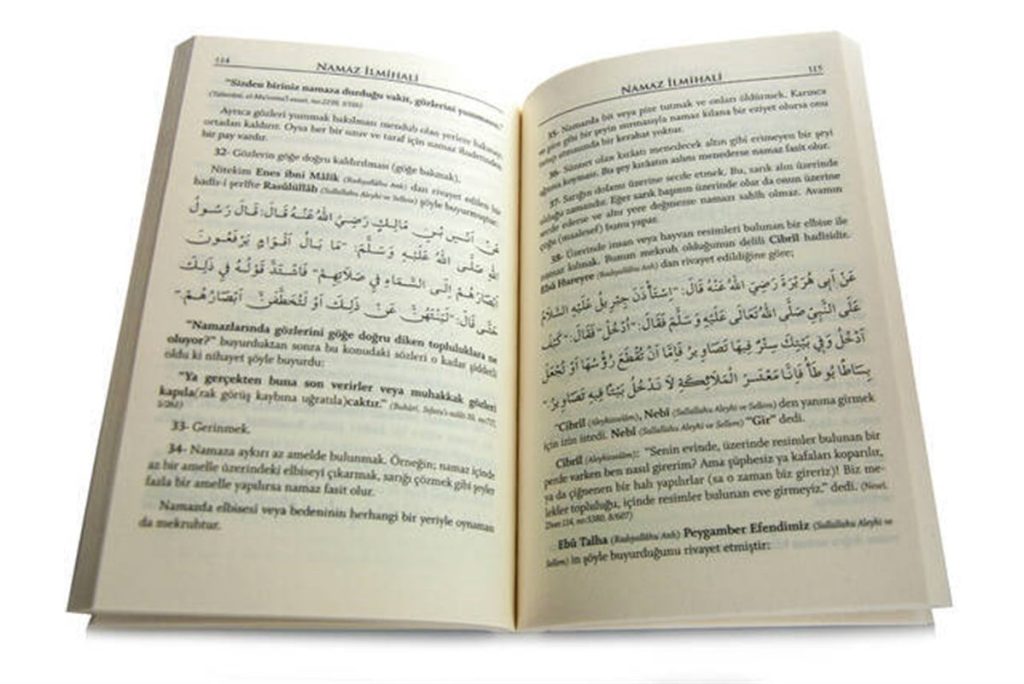 114
NAMAZ İLMİHALİ
"Sizden biriniz namaza durduğu vakit, gözlerini yummasın."
(Taberânî, el-Mu'cemu'l-evsat, no:2239,
Ayrıca gözleri yummak bakılması mendub olan yerlere bakmayı
ortadan kaldırır. Oysa her bir uzuv ve taraf için namaz ibadetinden
bir pay vardır.
32- Gözlerin göğe doğru kaldırılması (göğe bakmak).
Nitekim Enes ibni Mâlik (Radıyallâhu Anh) dan rivayet edilen bir
hadis-i şerifte Rasûlüllâh (Sallallahu Aleyhi ve Sellem) şöyle buyurmuştur:
عَنْ أَنَسِ بْنِ مَالِكٍ رَضِيَ اللهُ عَنْهُ قَالَ: قَالَ رَسُولُ
اللهِ صَلَّى اللهُ عَلَيْهِ وَسَلَّمَ: "مَا بَالُ أَقْوَامٍ يَرْفَعُونَ
أَبْصَارَهُمْ إِلَى السَّمَاءِ فِي صَلَاتِهِمْ" فَاشْتَدَّ قَوْلُهُ فِي ذَلِكَ
حَتَّى قَالَ: "لَيَنْتَهُنَّ عَنْ ذَلِكَ أَوْ لَتُخْطَفَنَّ أَبْصَارُهُمْ."
"Namazlarında gözlerini göğe doğru diken topluluklara ne
oluyor?" buyurduktan sonra bu konudaki sözleri o kadar şiddetli
oldu ki nihayet şöyle buyurdu:
"Ya gerçekten buna son verirler veya muhakkak gözleri
kapıla(rak görüş kaybına uğratıla)caktır." (Buhârî, Sıfatu's-salât: 10, no:717,
1/261)
33- Gerinmek.
34- Namaza aykırı az amelde bulunmak. Örneğin; namaz içinde
az bir amelle üzerindeki elbiseyi çıkarmak, sarığı çözmek gibi şeyler
fazla bir amelle yapılırsa namaz fasit olur.
Namazda elbisesi veya bedeninin herhangi bir yeriyle oynaması
da mekruhtur.
NAMAZ İLMİHALİ
115
35- Namazda bit veya pire tutmak ve onları öldürmek. Karınca
ve pire gibi bir şeyin ısırmasıyla namaz kılana bir eziyet olursa onu
tutup atmasında bir kerahat yoktur.
36- Sünnet olan kıratı menedecek altın gibi erimeyen bir şeyi
ağzına koyması. Bu şey kıratın aslını menederse namaz fasit olur.
37- Sarığın dolamı üzerine secde etmek. Bu, sarık alın üzerinde
olduğu zamandır. Eğer sarık başının üzerinde olur da onun üzerine
secde ederse ve alnı yere değmezse namazı sahih olmaz. Avamın
çoğu (maalesef) bunu yapar.
38- Üzerinde insan veya hayvan resimleri bulunan bir elbise ile
namaz kılmak. Bunun mekruh olduğunun delili Cibrîl hadîsidir.
Ebû Hureyre (Radıyallâhu Anh) dan rivayet edildiğine göre;
عَنْ أَبِي هُرَيْرَةَ رَضِيَ اللهُ عَنْهُ قَالَ: "اِسْتَأْذَنَ جِبْرِيلُ عَلَيْهِ السَّلَامُ
عَلَى النَّبِيِّ صَلَّى اللهُ تَعَالَى عَلَيْهِ وَسَلَّمَ فَقَالَ: "اُدْخُلْ" فَقَالَ: "كَيْفَ
أَدْخُلُ وَفِي بَيْتِكَ سِتْرٌ فِيهَا تَصَاوِيرُ فَإِمَّا أَنْ تُقْطَعَ رُؤُسُهَا أَوْ تُجْعَلَ
بِسَاطًا يُوطَأُ فَإِنَّا مَعْشَرَ الْمَلَائِكَةِ لَا نَدْخُلُ بَيْتًا فِيهِ تَصَاوِيرُ."
"Cibrîl (Aleyhisselâm), Nebî (Sallallahu Aleyhi ve Sellem) den yanına girmek
için izin istedi. Nebî (Sallallahu Aleyhi ve Sellem) "Gir" dedi.
Cibrîl (Aleyhisselâm): "Senin evinde, üzerinde resimler bulunan bir
perde varken ben nasıl girerim? Ama şüphesiz ya kafaları koparılır,
ya da çiğnenen bir halı yapılırlar (sa o zaman biz gireriz)! Biz me-
lekler topluluğu, içinde resimler bulunan eve girmeyiz." dedi. (Neseî,
Zînet:114, no:5380, 8/607)
Ebû Talha (Radıyallâhu Anh) Peygamber Efendimiz (Sallallahu Aleyhi ve
Sellem) in şöyle buyurduğunu rivayet etmiştir: